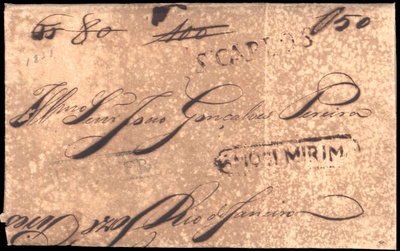 80 100 P50
1831
S. CARLOS
Illmo Snr João Gonçalves Pereira
MOGIMIRIM
Rio de Janeiro